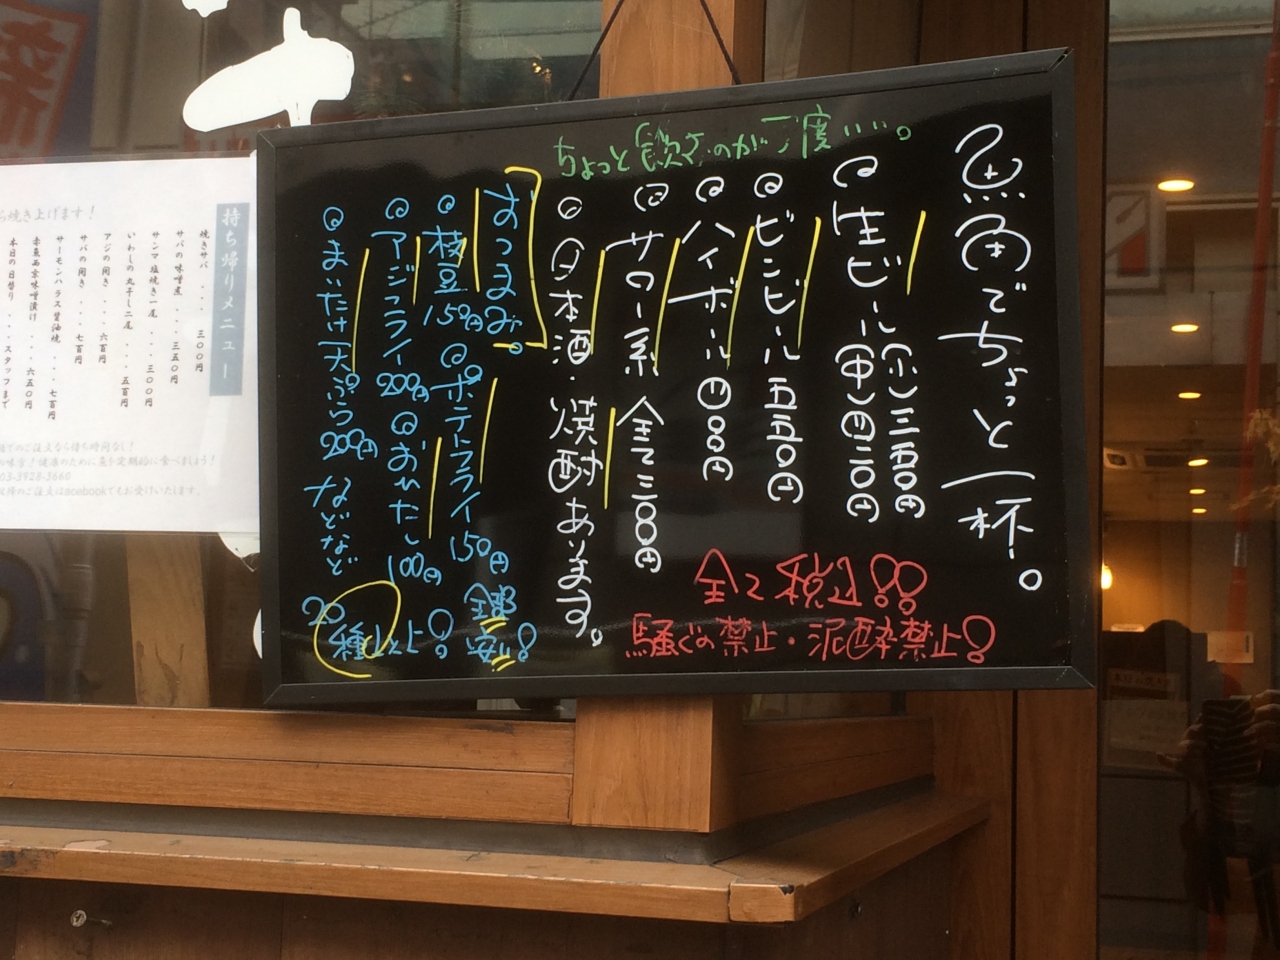 ちょっと飲むのが丁度いい。
魚角でちょっと一杯。
生ビール(小)三五〇円
(中)四二〇円
ビンビール 五五〇円
ハイボール 四〇〇円
サワー系 全て三〇〇円
日本酒・焼酎あります。
全て税込!!
騒ぐの禁止・泥酔禁止!
おつまみ。
枝豆 150円 ポテトフライ 150円
アジフライ 200円 おひたし 100円
まいたけ天ぷら 200円 などなど
20種以上! 全部安い!
持ち帰りメニュー
焼きサバ ... 三〇〇円
サバの味噌煮 ... 三五〇円
サンマ塩焼き一尾 ... 三〇〇円
いわしの丸干し二尾 ... 五百円
アジの開き ... 六百円
サバの開き ... 七百円
サーモンハラス醤油焼 ... 七百円
赤魚西京味噌漬け ... 六五〇円
本日の日替り ... スタッフまで
ら焼き上げます!
のご注文なら待ち時間なし!
健康のために魚を定期的に食べましょう!
03-3928-3660
のご注文はfacebookでもお受けいたします。